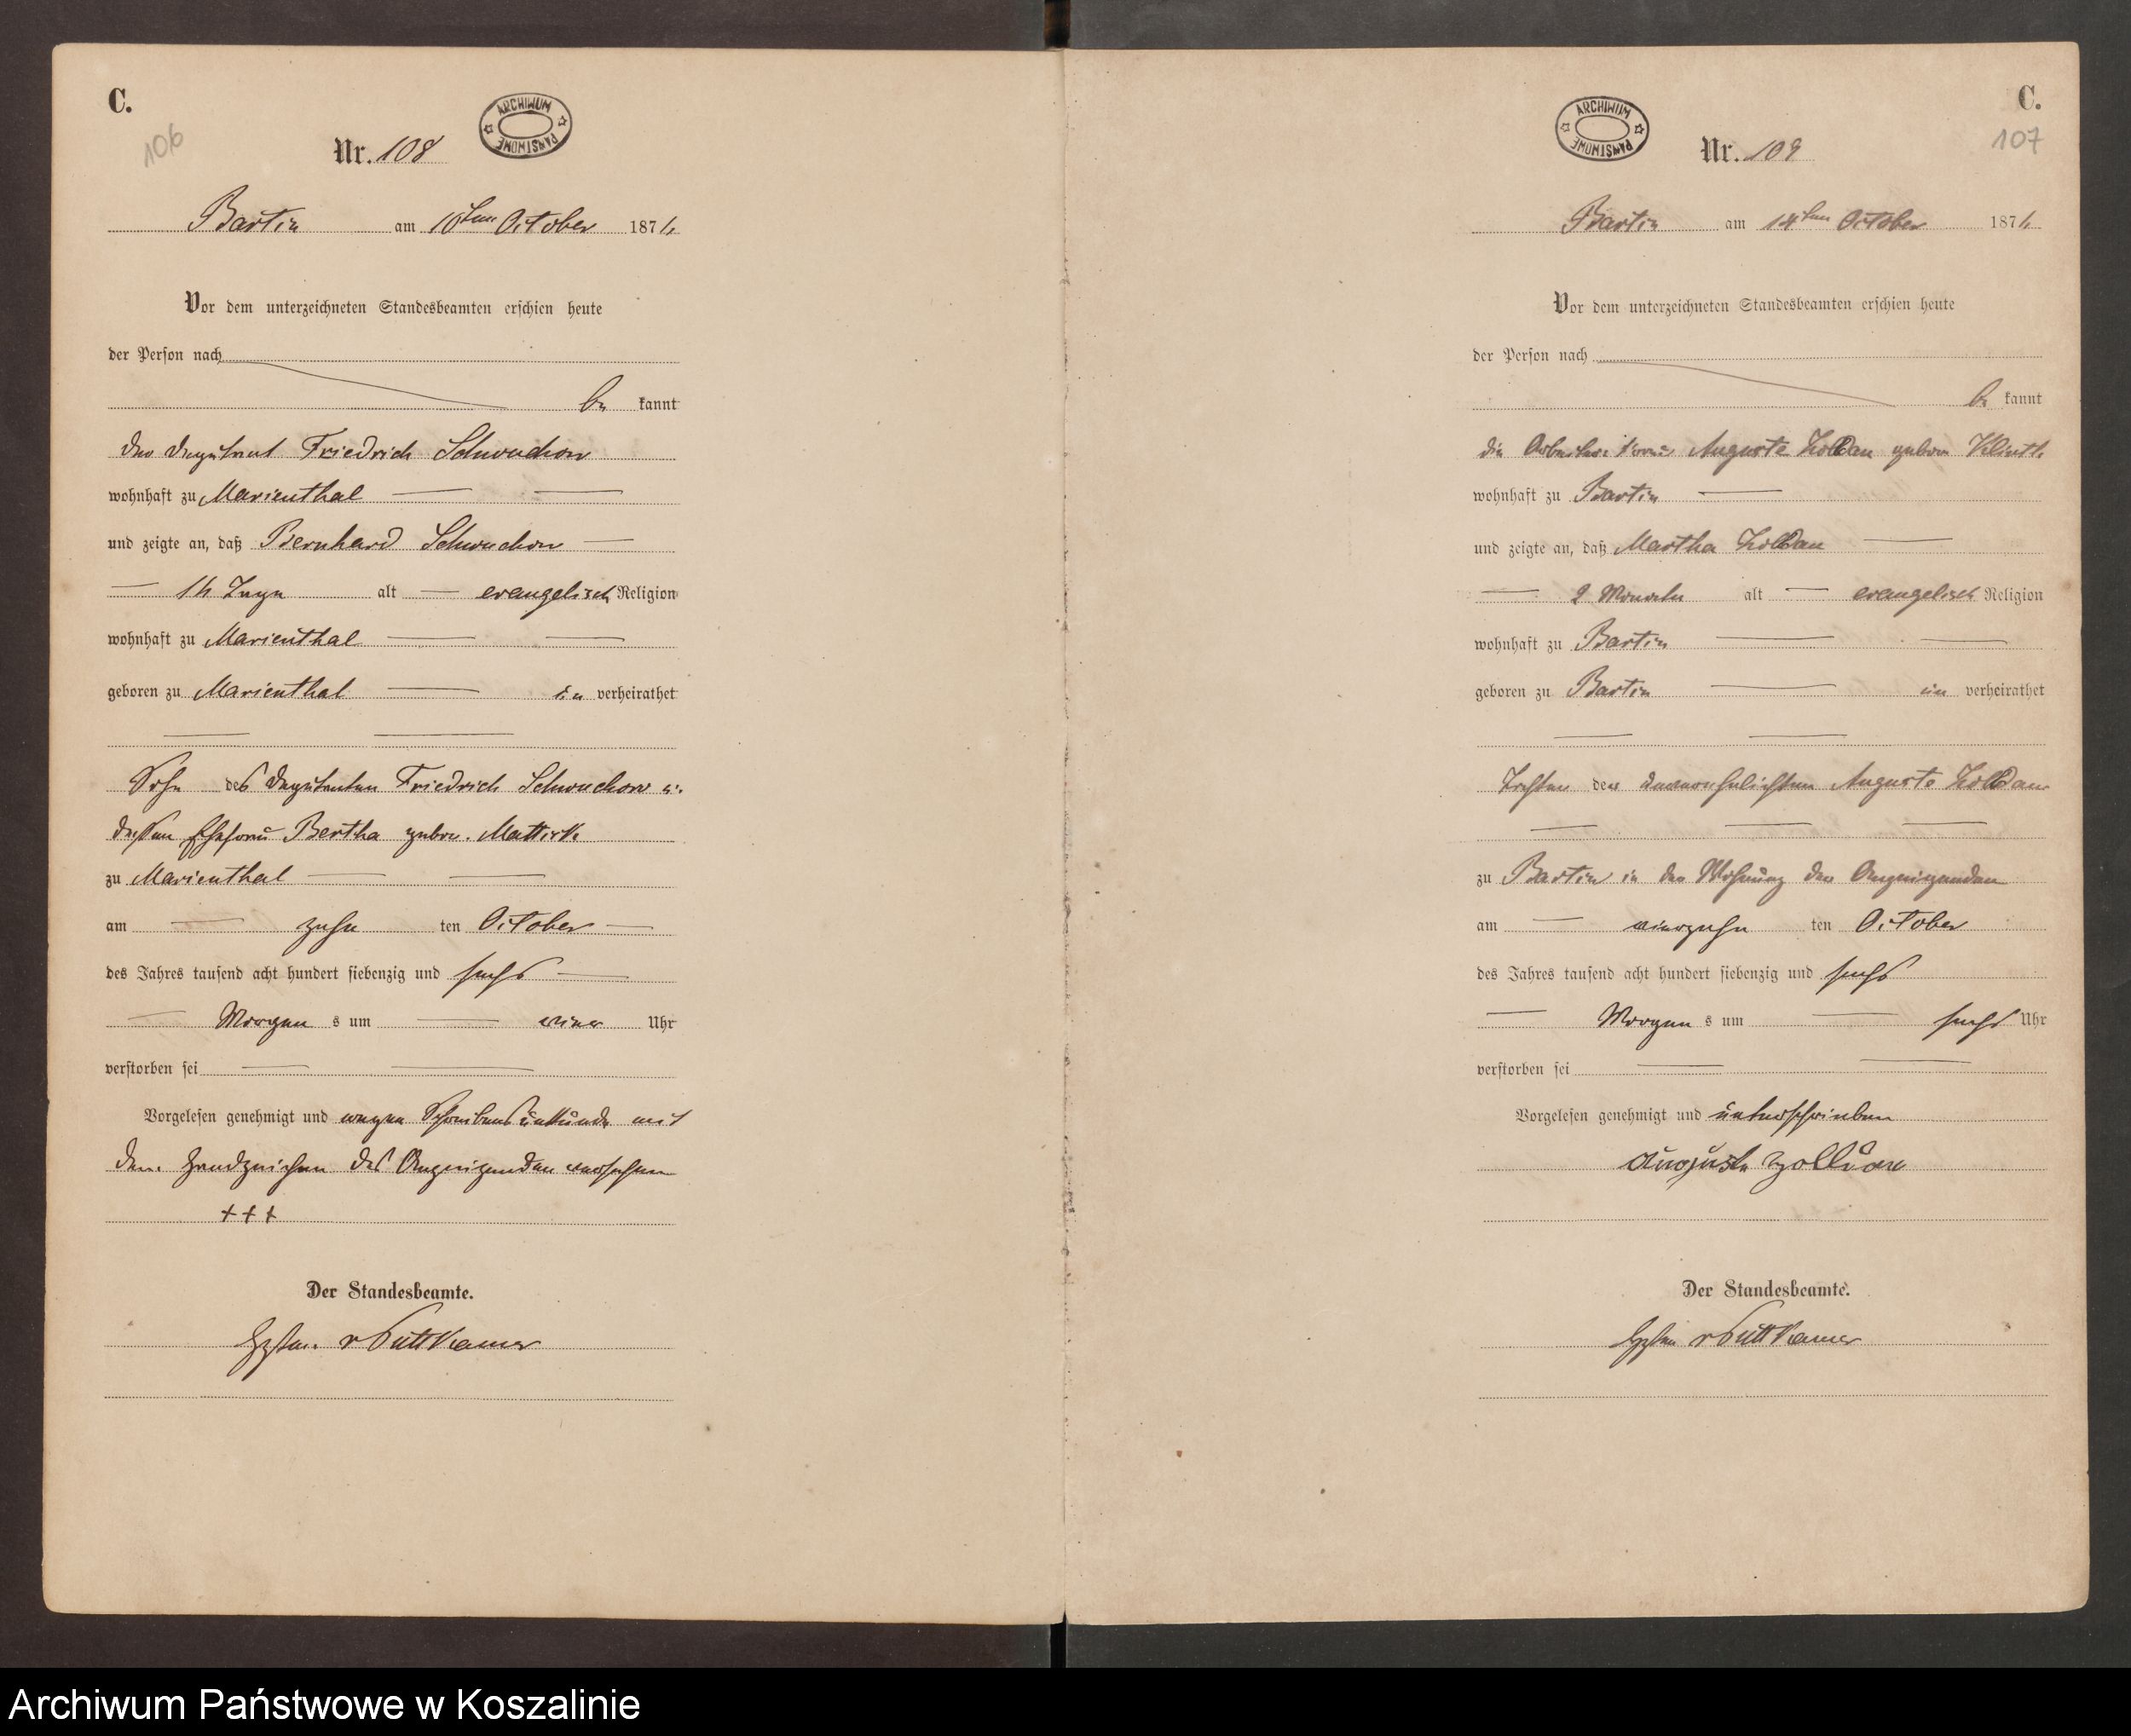 C.
106
Nr. 108
ARCHIWUM PAŃSTWOWE
Bartin am 10ten October 1876
Vor dem unterzeichneten Standesbeamten erschien heute
der Person nach
be kannt
der Deputant Friedrich Schwuchow
wohnhaft zu Marienthal
und zeigte an, daß Bernhard Schwuchow
14 Tage alt evangelisch Religion
wohnhaft zu Marienthal
geboren zu Marienthal un verheirathet
Sohn des Deputanten Friedrich Schwuchow u.
dessen Ehefrau Bertha gebor.
zu Marienthal
am zehn ten October
des Jahres tausend acht hundert siebenzig und sechs
Morgen s um vier Uhr
verstorben sei
Vorgelesen genehmigt und wegen Schreibensunkunde mit
dem Handzeichen des Anzeigenden versehen
+++
Der Standesbeamte.
v Puttkamer
C.
107
ARCHIWUM PAŃSTWOWE
Nr. 109
Bartin am 14ten October 1876
Vor dem unterzeichneten Standesbeamten erschien heute
der Person nach
be kannt
die Arbeiter frau Auguste Zolldan geborn
wohnhaft zu Bartin
und zeigte an, daß Martha Zolldan
2 Monate alt evangelisch Religion
wohnhaft zu Bartin
geboren zu Bartin un verheirathet
Tochter der Auguste Zolldan
zu Bartin in der Wohnung der Anzeigenden
am vierzehn ten October
des Jahres tausend acht hundert siebenzig und sechs
Morgen s um sechs Uhr
verstorben sei
Vorgelesen genehmigt und unterschrieben
Auguste
Der Standesbeamte.
v Puttkamer
Archiwum Państwowe w Koszalinie